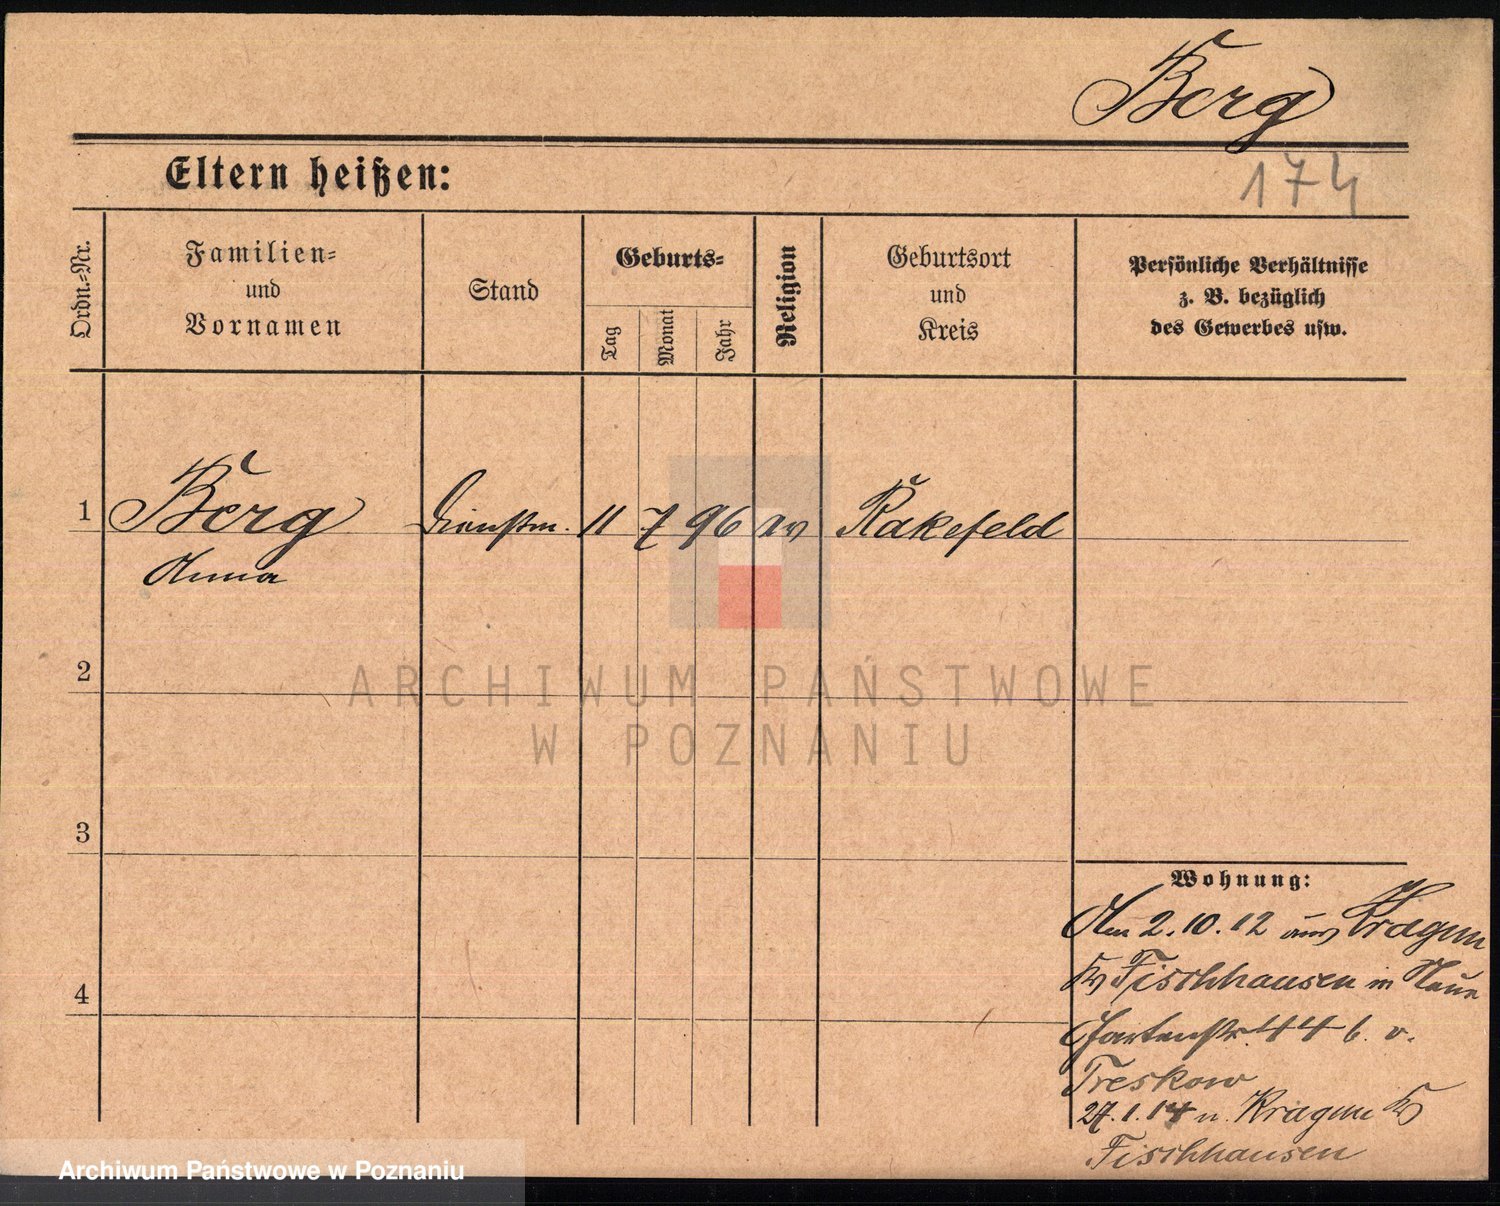 Berg
Eltern heißen:
174
Ordn.-Nr.
Familien-
und
Vornamen
Stand
Geburts-
Tag
Monat
Jahr
Religion
Geburtsort
und
Kreis
Persönliche Verhältnisse
z. B. bezüglich
des Gewerbes usw.
1
Berg
Anna
Dienstm.
11
7
96
ev
Rakefeld
2
ARCHIWUM PAŃSTWOWE
W POZNANIU
3
4
Wohnung:
Am 2.10.12 aus Kragau
Kr Fischhausen in Neue
Gartenstr. 44 b. v.
Treskow
27.1.14 n. Kragau Kr
Fischhausen
Archiwum Państwowe w Poznaniu